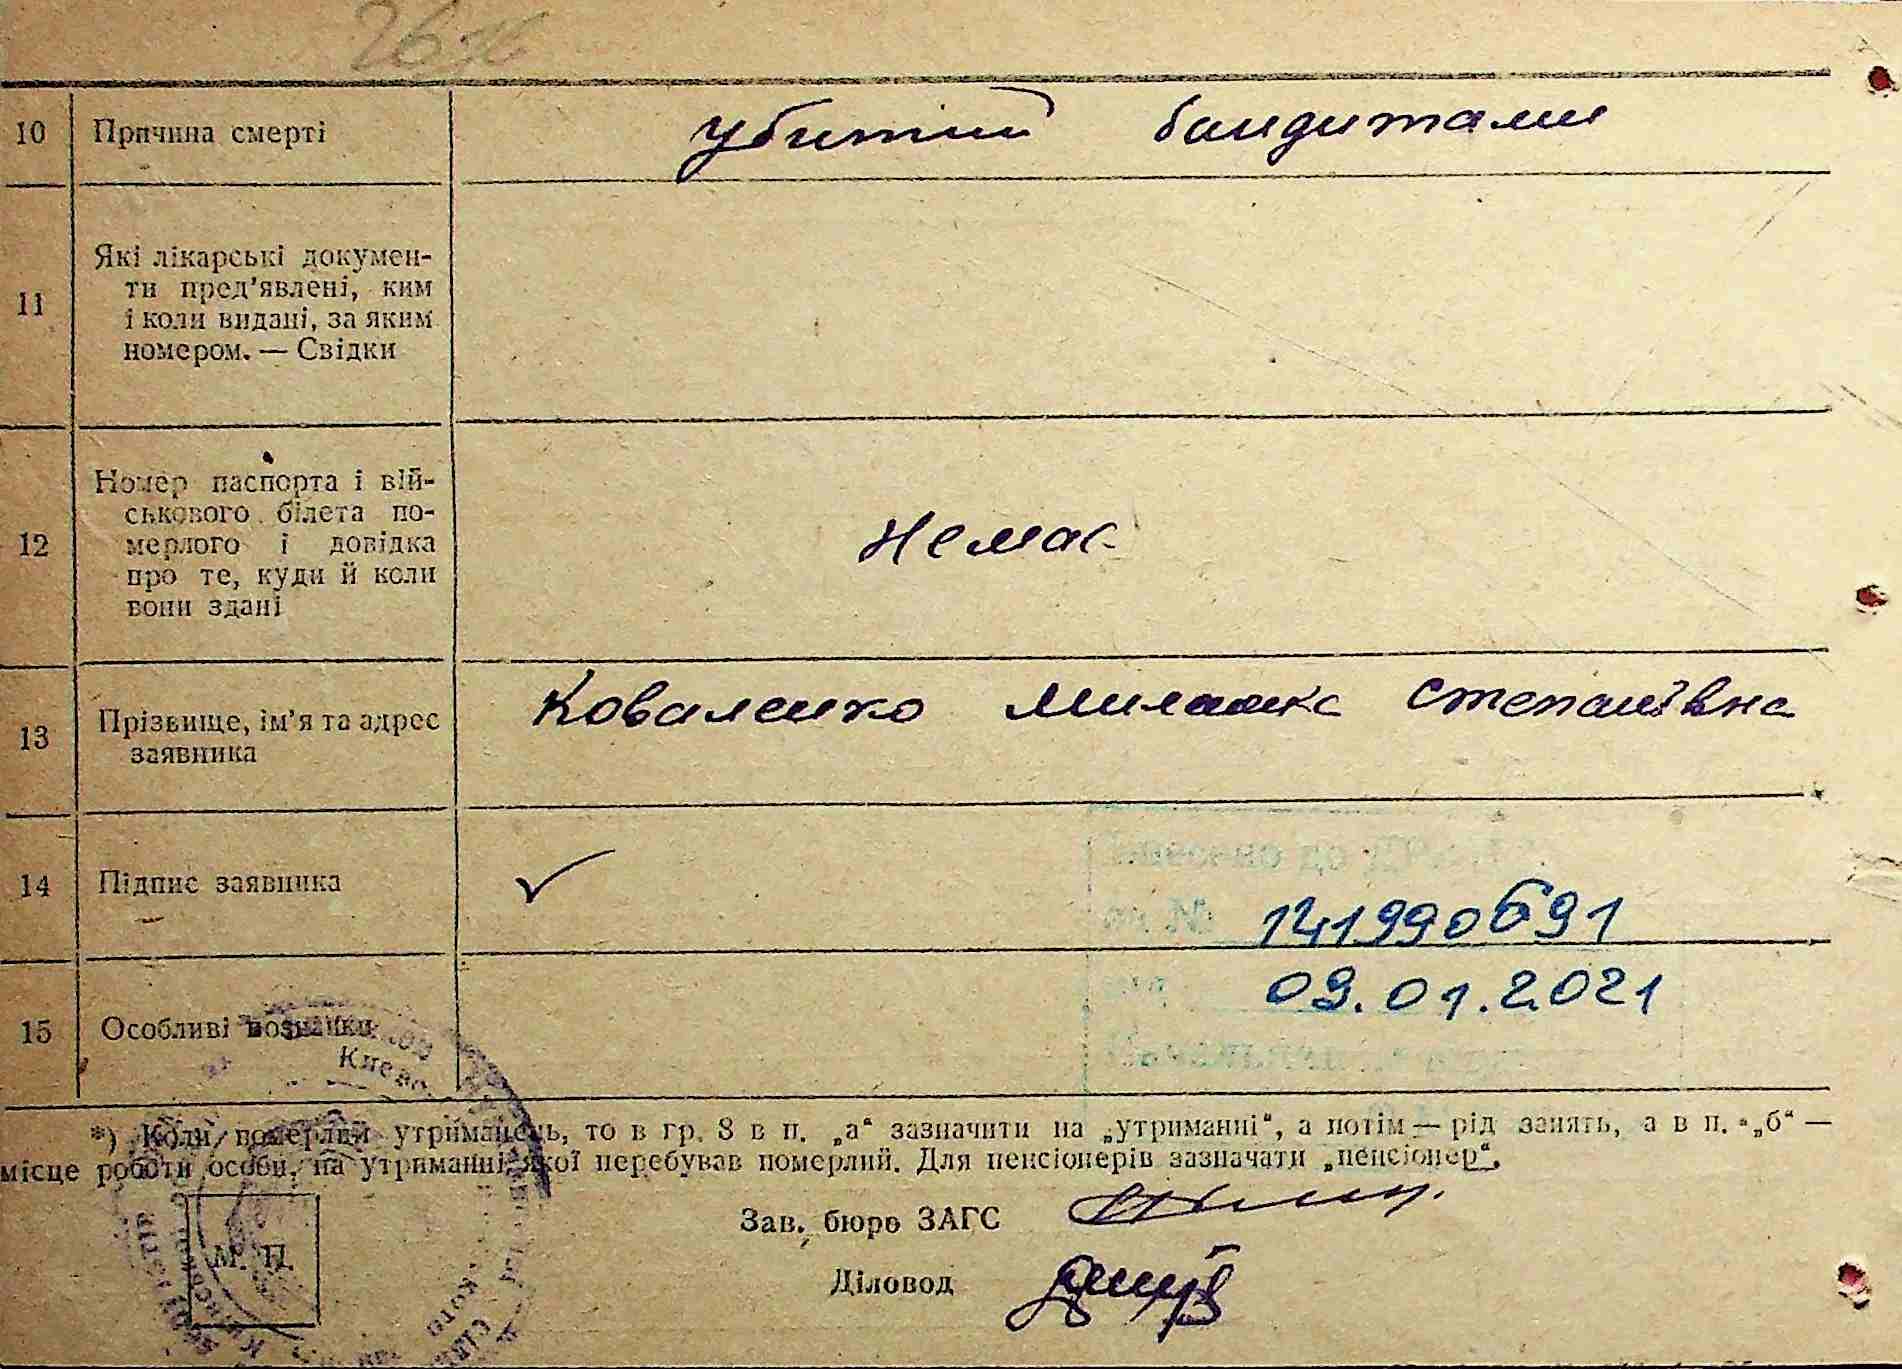 10 Причина смерті убитий бандитами
11 Які лікарські докумен-
ти пред'явлені, ким
і коли видані, за яким
номером. — Свідки
12 Номер паспорта і вій-
ськового білета по-
мерлого і довідка
про те, куди й коли
вони здані
немає
13 Прізвище, ім'я та адрес
заявника
Коваленко Степанівна
14 Підпис заявника
№ 141990691
09.01.2021
15 Особливі познайки
*) Коли померлий утриманець, то в гр. 8 в п. „а“ зазначити на „утриманні“, а потім — рід занять, а в п. „б“ —
місце роботи особи, на утриманні якої перебував померлий. Для пенсіонерів зазначати „пенсіонер“.
Зав. бюро ЗАГС
М. П.
Діловод